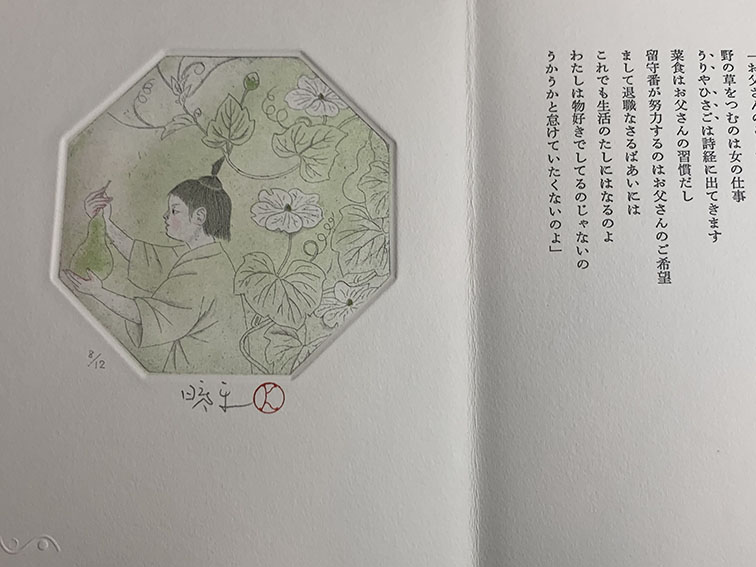 「お父さんの
野の草をつむのは女の仕事
うりやひさごは詩経に出てきます
菜食はお父さんの習慣だし
留守番が努力するのはお父さんのご希望
まして退職なさるばあいには
これでも生活のたしにはなるのよ
わたしは物好きでしてるのじゃないの
うかうかと怠けていたくないのよ」
8/12
K